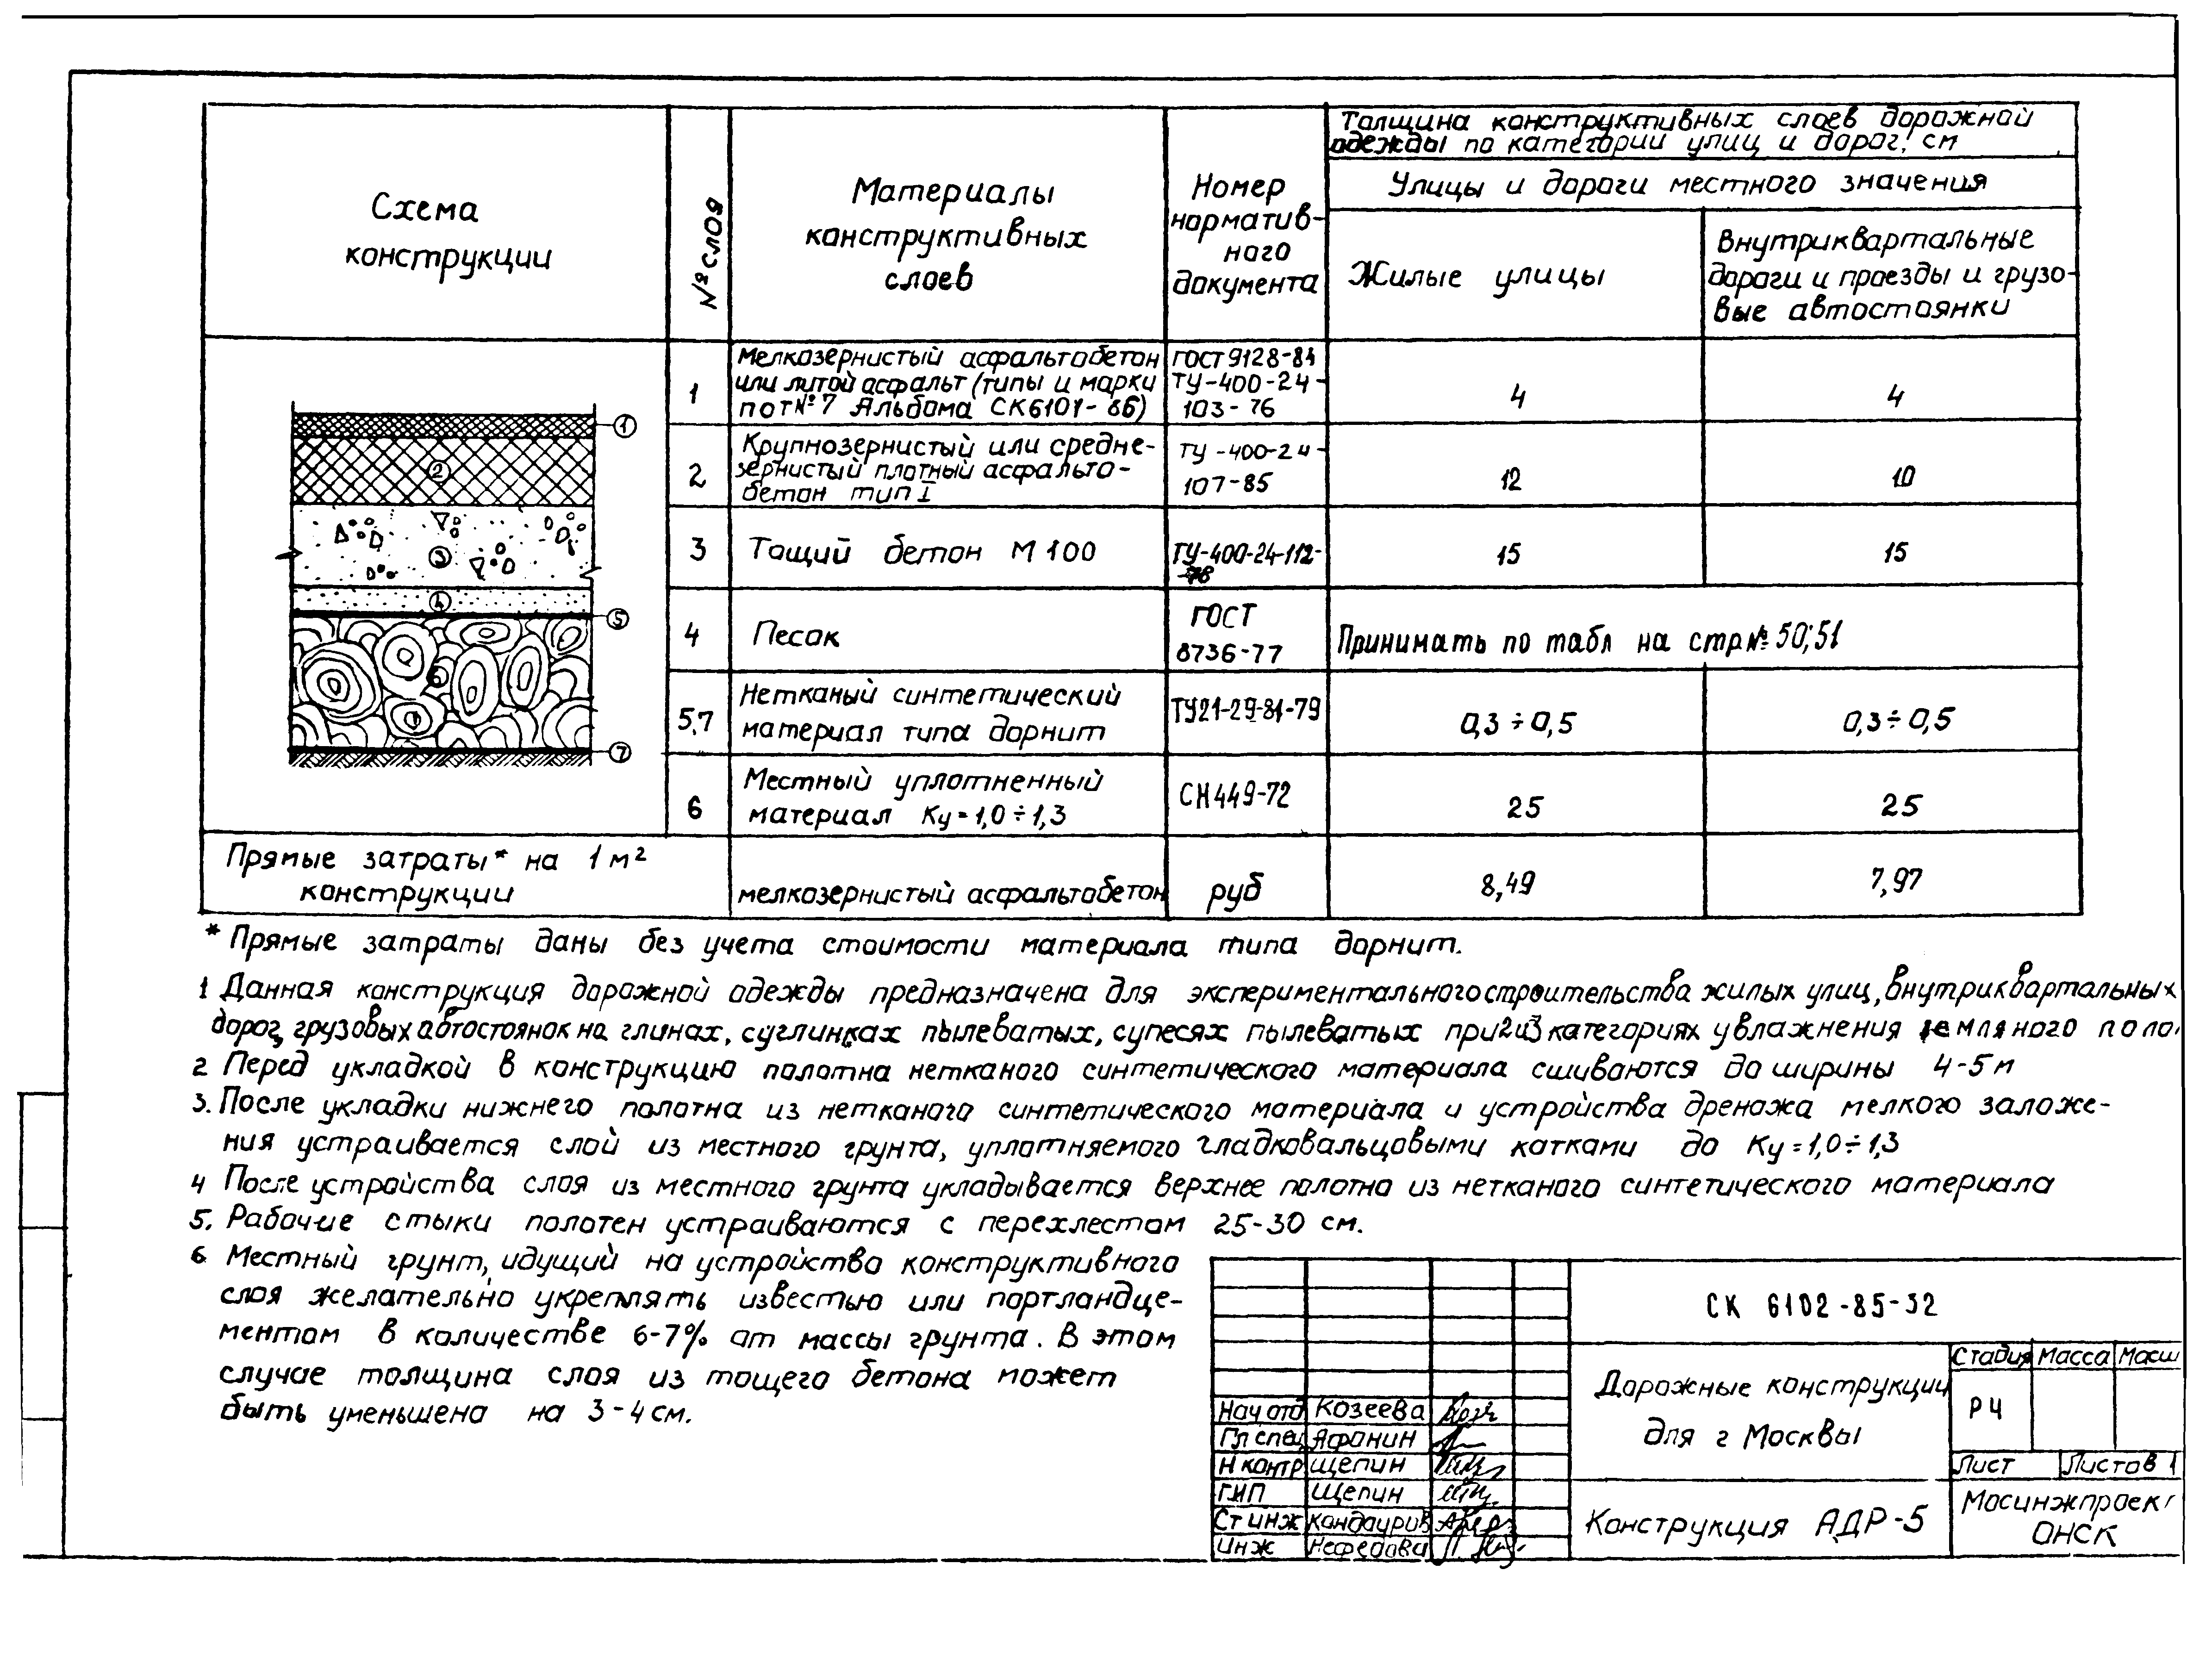 Схема
конструкции
№ слоя
Материалы
конструктивных
слоев
Номер
норматив-
ного
документа
Толщина конструктивных слоев дорожной
одежды по категории улиц и дорог, см
Улицы и дороги местного значения
Жилые улицы
Внутриквартальные
дороги и проезды и грузо-
вые автостоянки
1
Мелкозернистый асфальтобетон
или литой асфальт (типы и марки
по т №7 Альбома СК6101-86)
ГОСТ 9128-84
ТУ-400-24-
103-76
4
4
2
Крупнозернистый или средне-
зернистый плотный асфальто-
бетон тип I
ТУ-400-24-
107-85
12
10
3
Тощий бетон М 100
ТУ-400-24-112-
-78
15
15
4
Песок
ГОСТ
8736-77
Принимать по табл на стр № 50;51
5,7
Нетканый синтетический
материал типа дорнит
ТУ21-29-81-79
0,3÷0,5
0,3÷0,5
6
Местный уплотненный
материал Ку=1,0÷1,3
СН449-72
25
25
1
2
3
4
5
6
7
Прямые затраты* на 1 м²
конструкции
мелкозернистый асфальтобетон
руб
8,49
7,97
* Прямые затраты даны без учета стоимости материала типа дорнит.
1 Данная конструкция дорожной одежды предназначена для экспериментального строительства жилых улиц, внутриквартальных
дорог, грузовых автостоянок на глинах, суглинках пылеватых, супесях пылеватых при 2 и 3 категориях увлажнения земляного поло
2 Перед укладкой в конструкцию полотна нетканого синтетического материала сшиваются до ширины 4-5 м
3. После укладки нижнего полотна из нетканого синтетического материала и устройства дренажа мелкого заложе-
ния устраивается слой из местного грунта, уплотняемого гладковальцовыми катками до Ку=1,0÷1,3
4 После устройства слоя из местного грунта укладывается верхнее полотно из нетканого синтетического материала
5. Рабочие стыки полотен устраиваются с перехлестом 25-30 см.
6 Местный грунт, идущий на устройство конструктивного
слоя желательно укреплять известью или портландце-
ментом в количестве 6-7% от массы грунта. В этом
случае толщина слоя из тощего бетона может
быть уменьшена на 3-4 см.
СК 6102-85-32
Дорожные конструкции
для г Москвы
Стадия Масса Масш
РЧ
Лист Листов 1
Нач отд Козеева
Гл спец Афонин
Н контр Щепин
ГИП Щепин
Ст инж Кондауров
Инж Нефедова
Конструкция АДР-5
Мосинжпроект
ОНСК